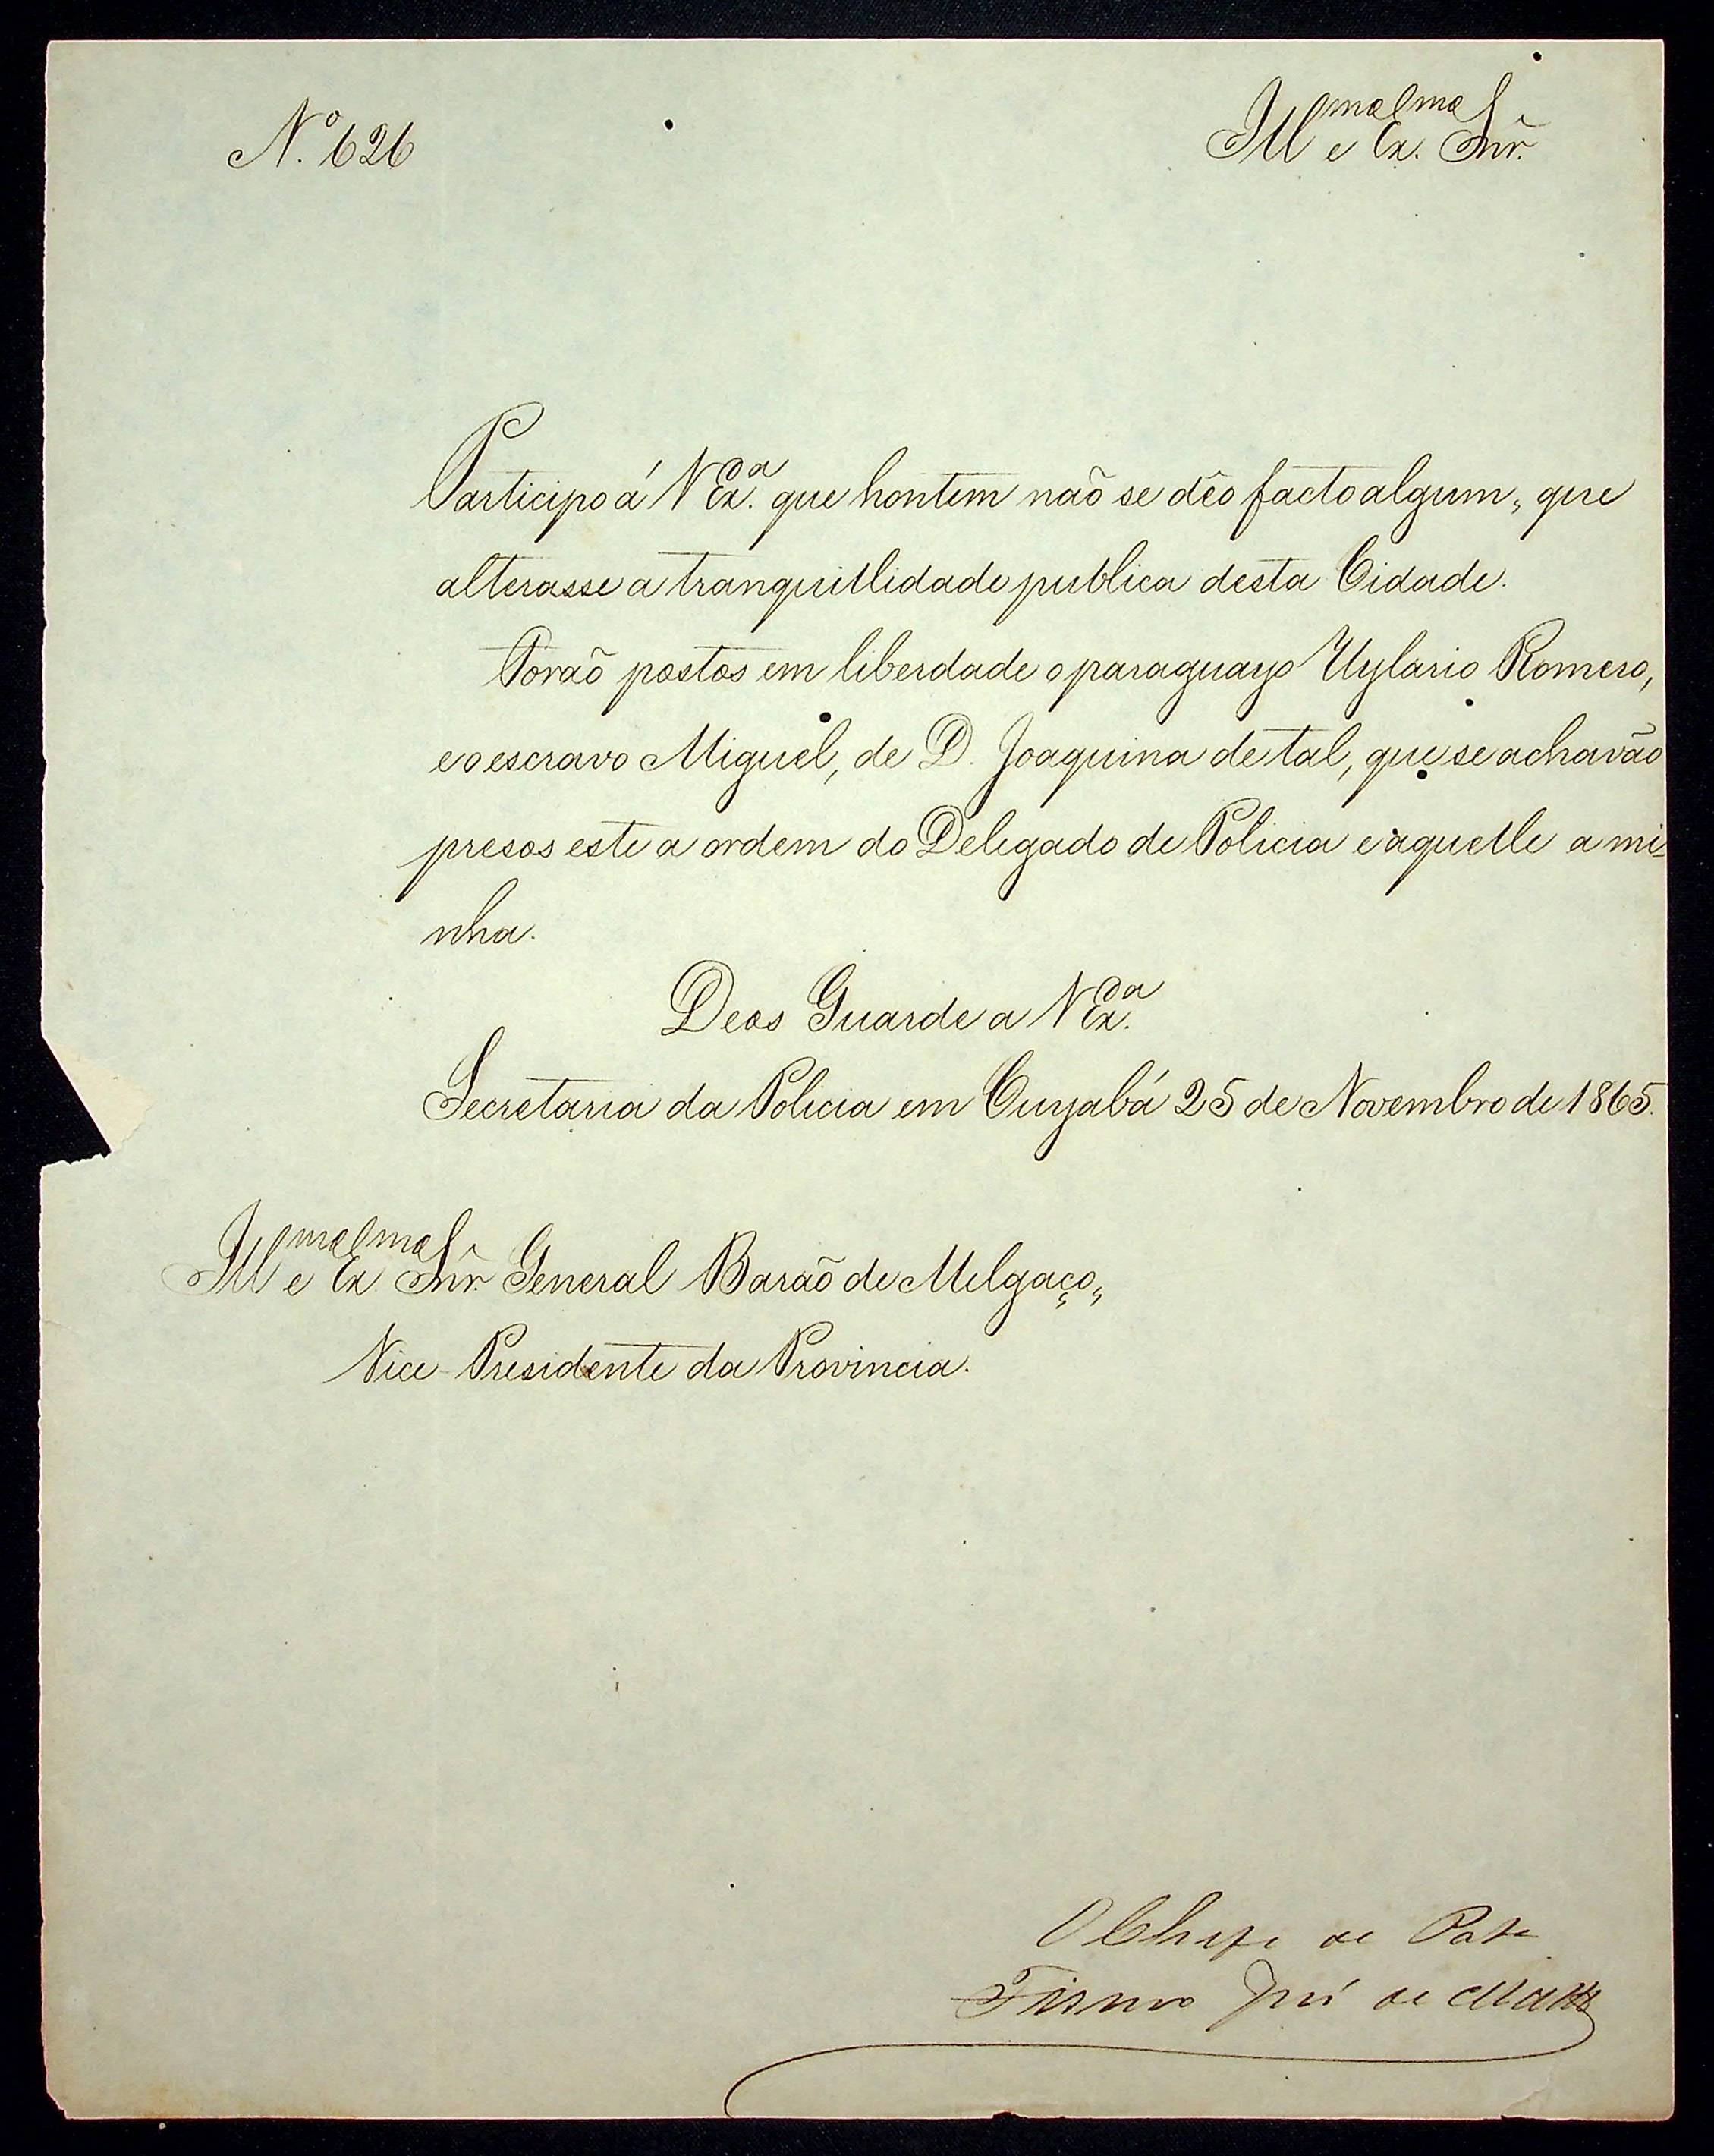 Nº 626
Illmo e Exmo Snr.
Participo á V Exa. que hontem naõ se dêo facto algum, que
alterasse a tranquillidade publica desta Cidade.
Foraõ postos em liberdade o paraguayo Hylario Romero,
e o escravo Miguel, de D. Joaquina de tal, que se achavão
presos este a ordem do Delegado de Policia e aquelle a mi-
nha.
Deos Guarde a V Exa.
Secretaria da Policia em Cuyabá 25 de Novembro de 1865.
Illmo e Exmo Snr. General Baraõ de Melgaço,
Vice-Presidente da Provincia.
O Chefe de Pola
Firmo José de Mattos